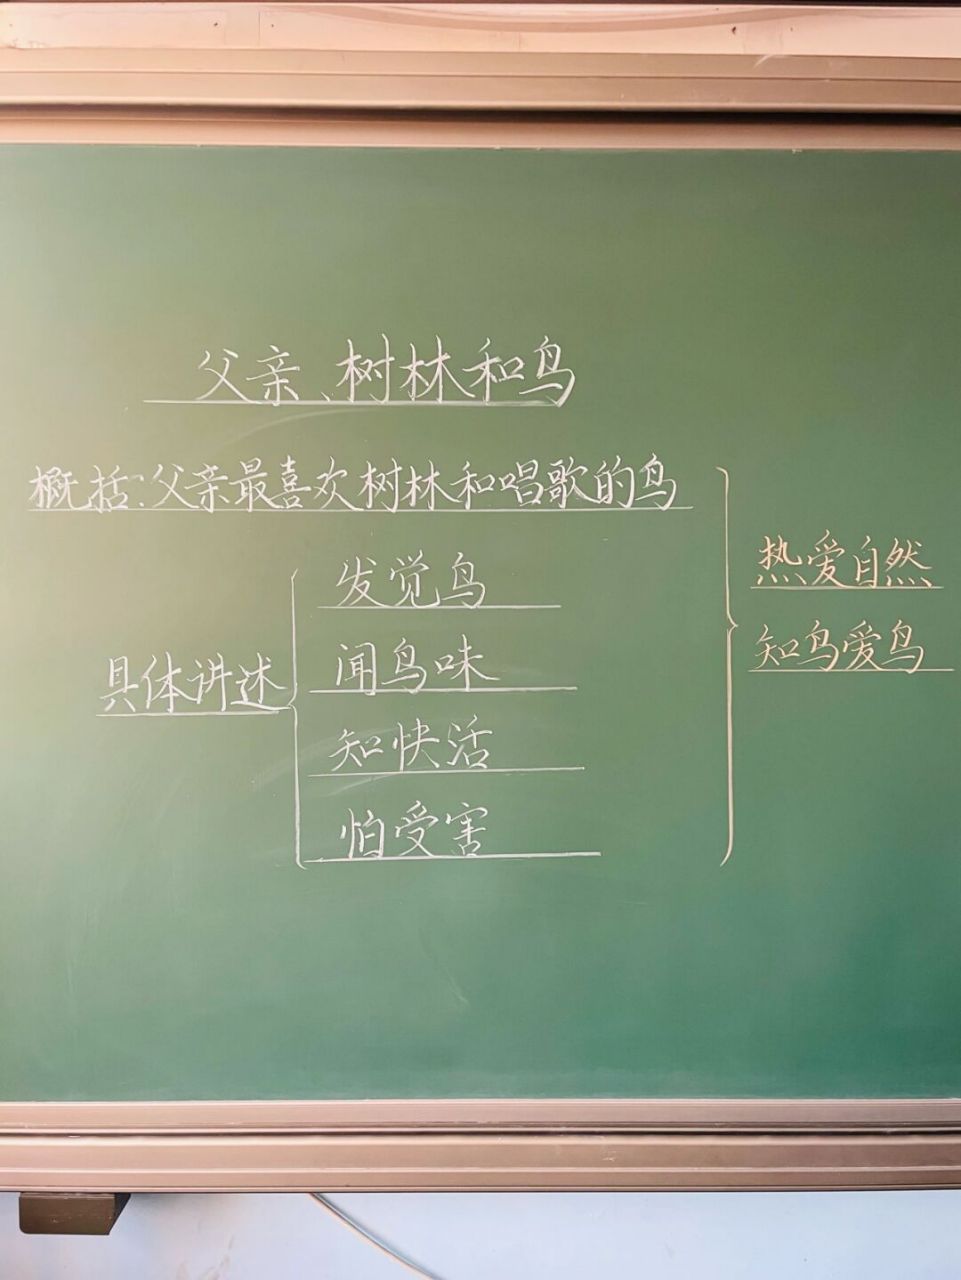 父亲、树林和鸟
概括:父亲最喜欢树林和唱歌的鸟
具体讲述
发觉鸟
闻鸟味
知快活
怕受害
热爱自然
知鸟爱鸟